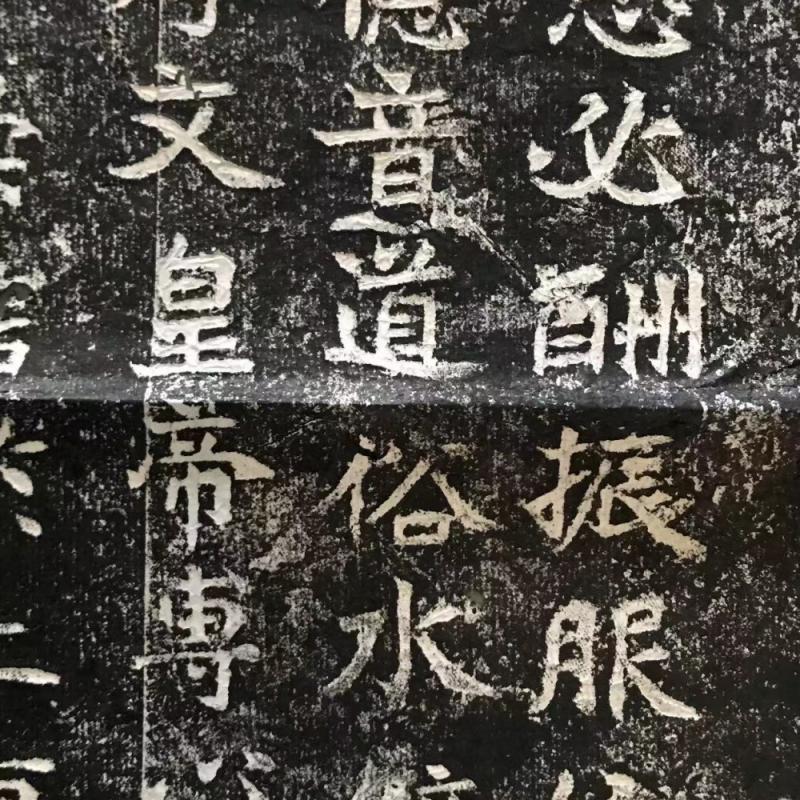 必酬振服
德音道俗水
文皇帝專